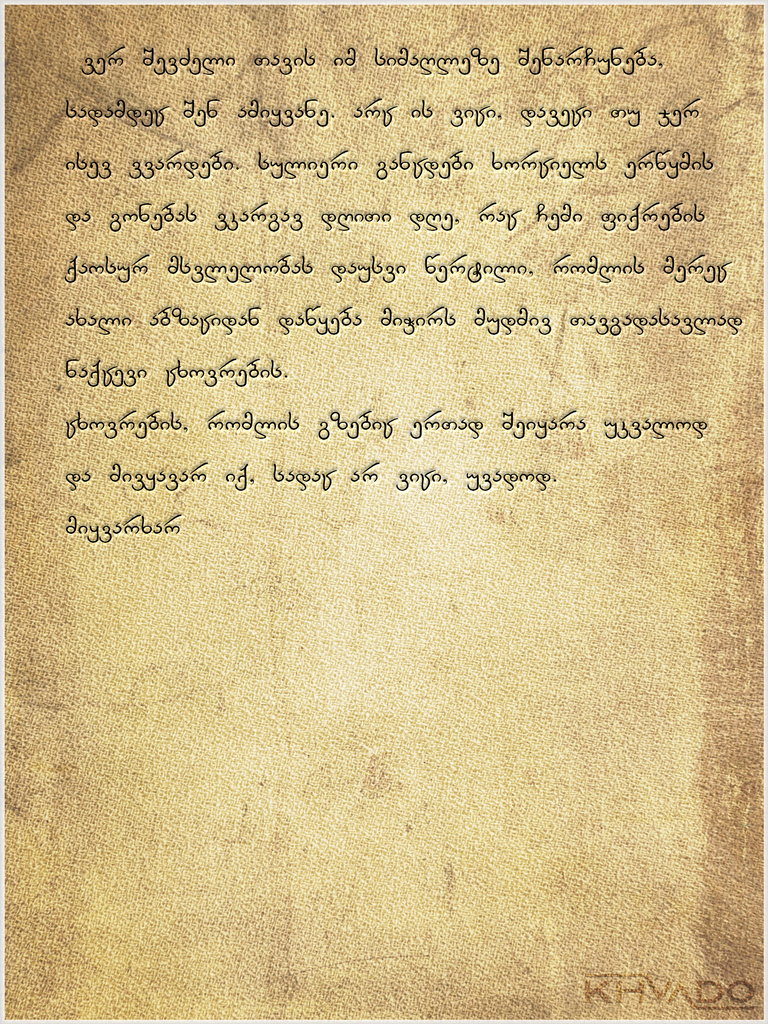 ვერ შევძელი თავის იმ სიმაღლეზე შენარჩუნება,
სადამდეც შენ ამიყვანე. არც ის ვიცი, დავეცი თუ ჯერ
ისევ ვვარდები. სულიერი განცდები ხორციელს ერწყმის
და გონებას ვკარგავ დღითი დღე, რაც ჩემი ფიქრების
ქაოსურ მსვლელობას დაუსვი წერტილი, რომლის მერეც
ახალი აბზაციდან დაწყება მიჭირს მუდმივ თავგადასავლად
ნაქცევი ცხოვრების.
ცხოვრების, რომლის გზებიც ერთად შეიყარა უკვალოდ
და მივყავარ იქ, სადაც არ ვიცი, უვადოდ.
მიყვარხარ
KHVADO